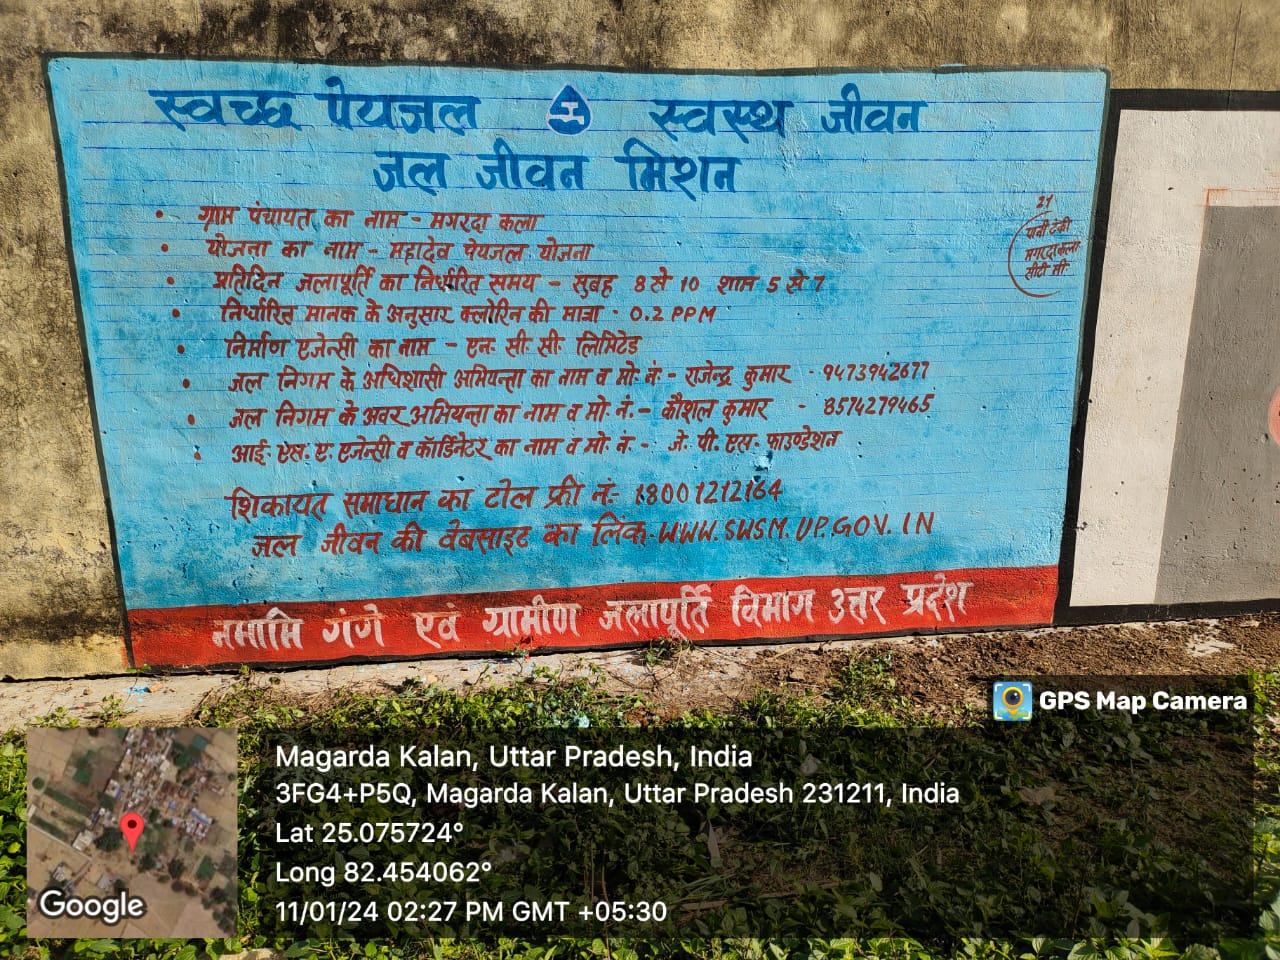 स्वच्छ पेयजल स्वस्थ जीवन
जल जीवन मिशन
• ग्राम पंचायत का नाम - मगरदा कला
• योजना का नाम - महादेव पेयजल योजना
• प्रतिदिन जलापूर्ति का निर्धारित समय - सुबह 8 से 10 शाम 5 से 7
• निर्धारित मानक के अनुसार क्लोरिन की मात्रा - 0.2 PPM
• निर्माण एजेन्सी का नाम - एन. सी. सी. लिमिटेड
• जल निगम के अधिशासी अभियन्ता का नाम व मो. नं. - राजेन्द्र कुमार - 9473942677
• जल निगम के अवर अभियन्ता का नाम व मो. नं. - कौशल कुमार - 8574279465
• आई. एस. ए. एजेन्सी व कॉर्डिनेटर का नाम व मो. नं. - जे. पी. एस. फाउण्डेशन
शिकायत समाधान का टोल फ्री नं.- 18001212164
जल जीवन की वेबसाइट का लिंक-WWW.SWSM.UP.GOV.IN
नमामि गंगे एवं ग्रामीण जलापूर्ति विभाग उत्तर प्रदेश
21
पानी टंकी
मगरदा कला
सीटी सी.
GPS Map Camera
Magarda Kalan, Uttar Pradesh, India
3FG4+P5Q, Magarda Kalan, Uttar Pradesh 231211, India
Lat 25.075724°
Long 82.454062°
11/01/24 02:27 PM GMT +05:30
Google